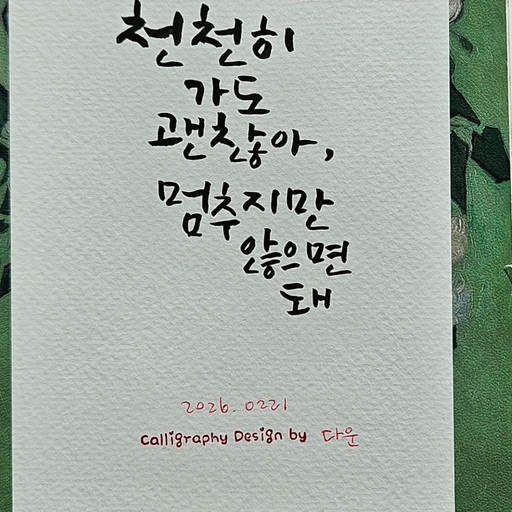 천천히
가도
괜찮아,
멈추지만
않으면
돼
2026. 0221
Calligraphy Design by 다운